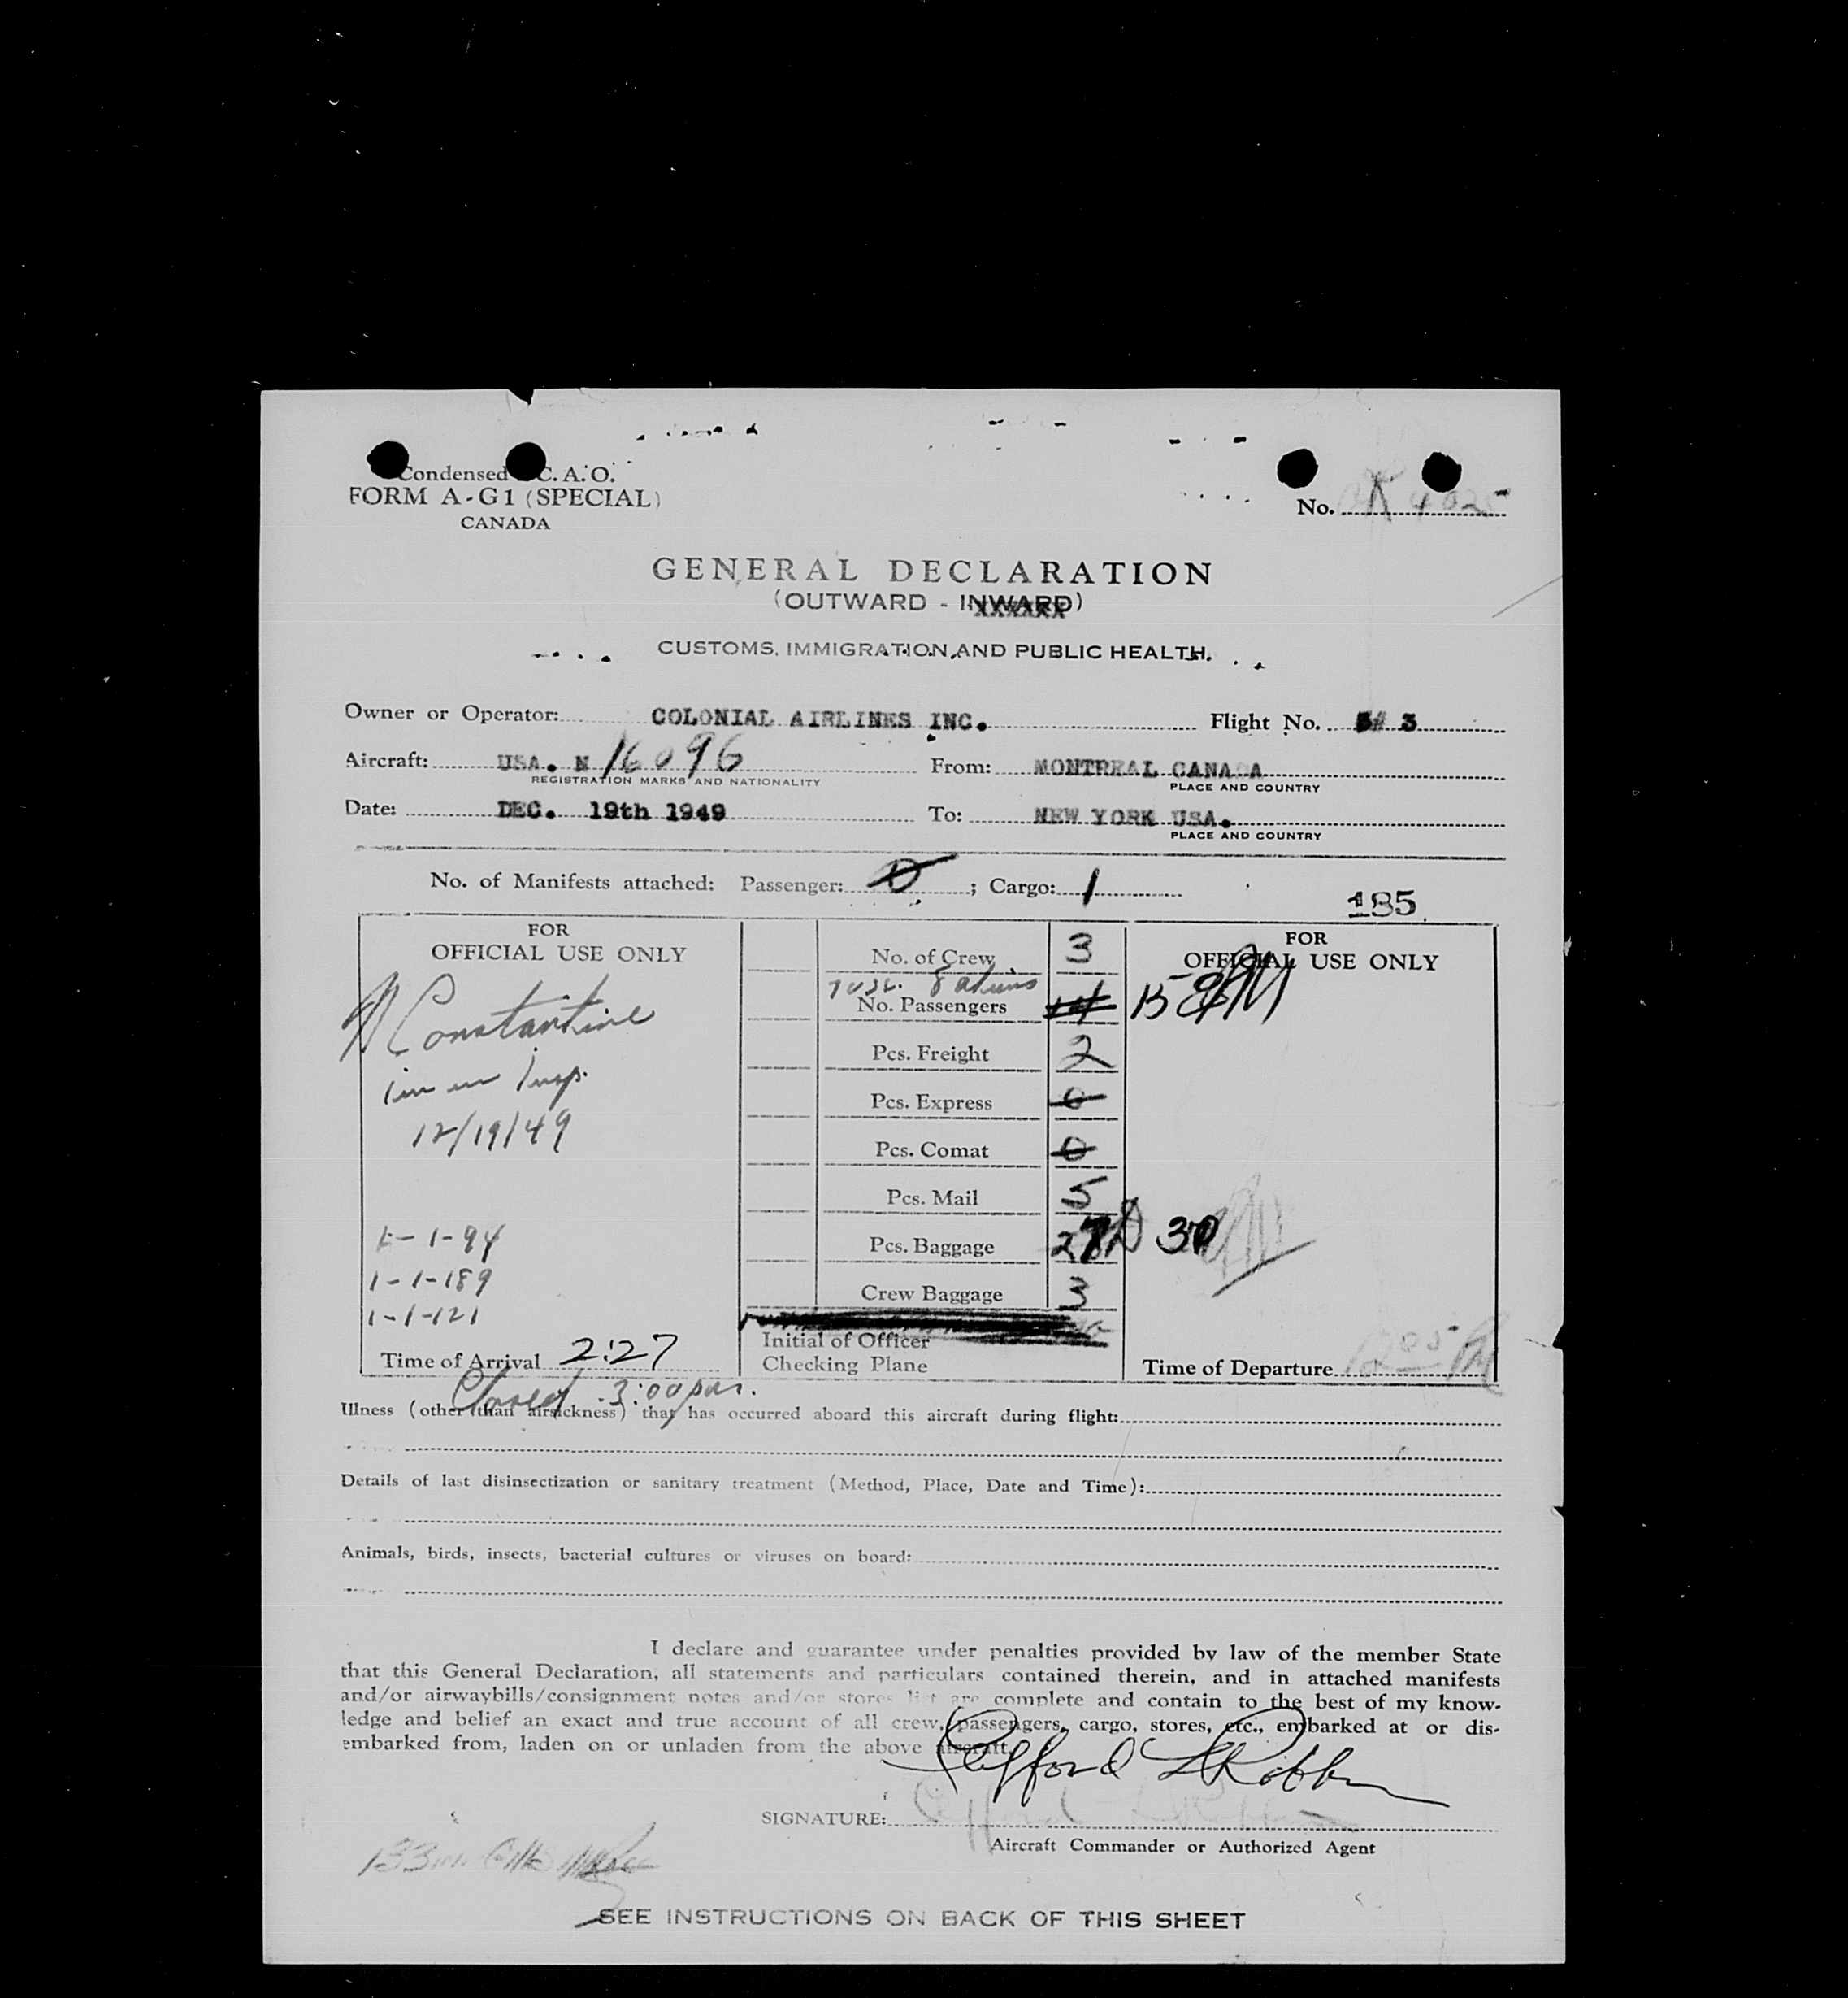 Condensed C. A. O.
FORM A-G1 (SPECIAL)
CANADA
No. 4025
GENERAL DECLARATION
(OUTWARD - INWARD)
XXXXXX
CUSTOMS, IMMIGRATION, AND PUBLIC HEALTH.
Owner or Operator: COLONIAL AIRLINES INC. Flight No. 3
Aircraft: USA. N 16096 From: MONTREAL CANA A
REGISTRATION MARKS AND NATIONALITY PLACE AND COUNTRY
Date: DEC. 19th 1949 To: NEW YORK USA.
PLACE AND COUNTRY
No. of Manifests attached: Passenger: 0 ; Cargo: 1
185
FOR
OFFICIAL USE ONLY
N Constantine
Imm Insp.
12/19/49
1-1-94
1-1-189
1-1-121
Time of Arrival 2:27
Closed 3:00 pm.
No. of Crew 3
7 USC. 8 aliens
No. Passengers 14
Pcs. Freight 2
Pcs. Express 0
Pcs. Comat 0
Pcs. Mail 5
Pcs. Baggage
Crew Baggage 3
Initial of Officer
Checking Plane
FOR
OFFICIAL USE ONLY
15
30
Time of Departure 1205 PM
Illness (other than airsickness) that has occurred aboard this aircraft during flight:
Details of last disinsectization or sanitary treatment (Method, Place, Date and Time):
Animals, birds, insects, bacterial cultures or viruses on board:
I declare and guarantee under penalties provided by law of the member State
that this General Declaration, all statements and particulars contained therein, and in attached manifests
and/or airwaybills/consignment notes and/or stores list are complete and contain to the best of my know-
ledge and belief an exact and true account of all crew, passengers, cargo, stores, etc., embarked at or dis-
embarked from, laden on or unladen from the above aircraft.
SIGNATURE:
Aircraft Commander or Authorized Agent
SEE INSTRUCTIONS ON BACK OF THIS SHEET